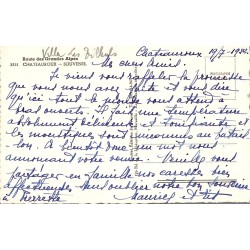 Villa Les
Route des Grandes Alpes
CHATEAUROUX - SOUVENIR
Chateauroux — 19/7 - 1950.
Mes chers Amis.
Je viens vous rappeler la promesse
que vous nous avez faite et vous dire
qu'ici tout le monde vous attend à
bras ouverts. Il fait une température
absolument délicieuse et
les moustiques sont inconnus au
A bientôt donc un mot nous
annonçant votre venue. Veuillez vous
partager en famille nos caresses bien
affectueuses,
à Pierrette